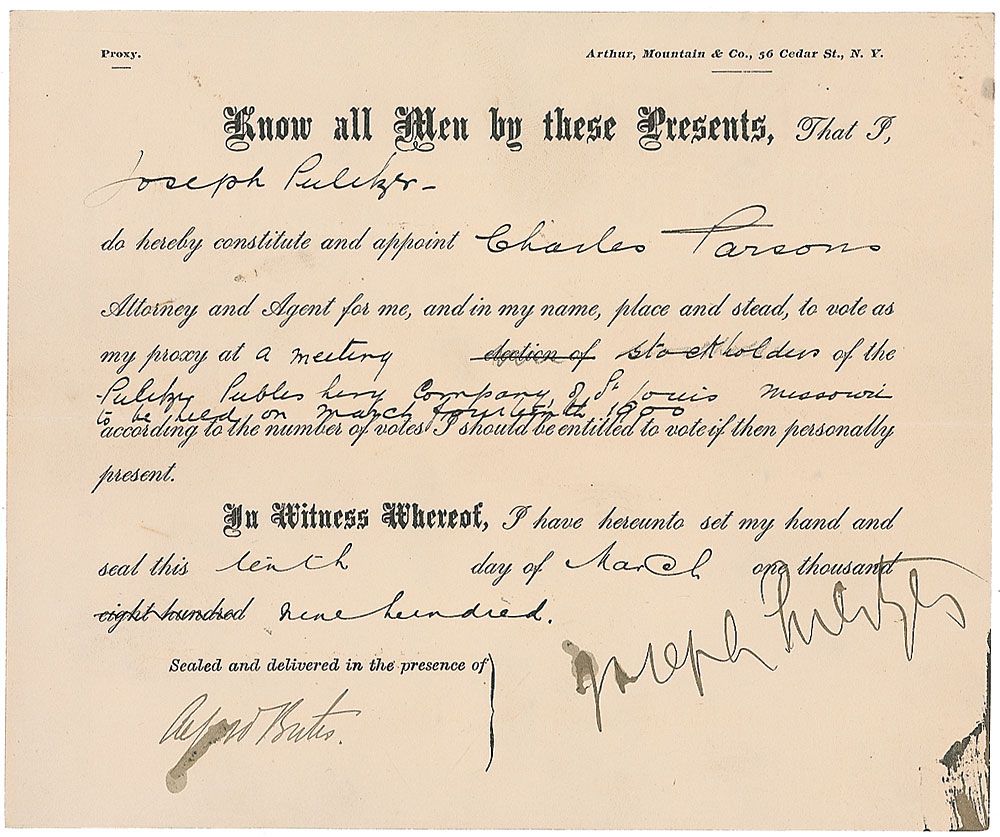 Proxy.
Arthur, Mountain & Co., 56 Cedar St., N. Y.
Know all Men by these Presents, That I,
Joseph Pulitzer-
do hereby constitute and appoint Charles Parsons
Attorney and Agent for me, and in my name, place and stead, to vote as
my proxy at a meeting election of stockholders of the
Pulitzer Publishing Company, of St Louis Missouri
to be held on March fourteenth 1900
according to the number of votes I should be entitled to vote if then personally
present.
In Witness Whereof, I have hereunto set my hand and
seal this tenth day of March one thousand
eight hundred nine hundred.
Joseph Pulitzer
Sealed and delivered in the presence of
Alfred Butes.